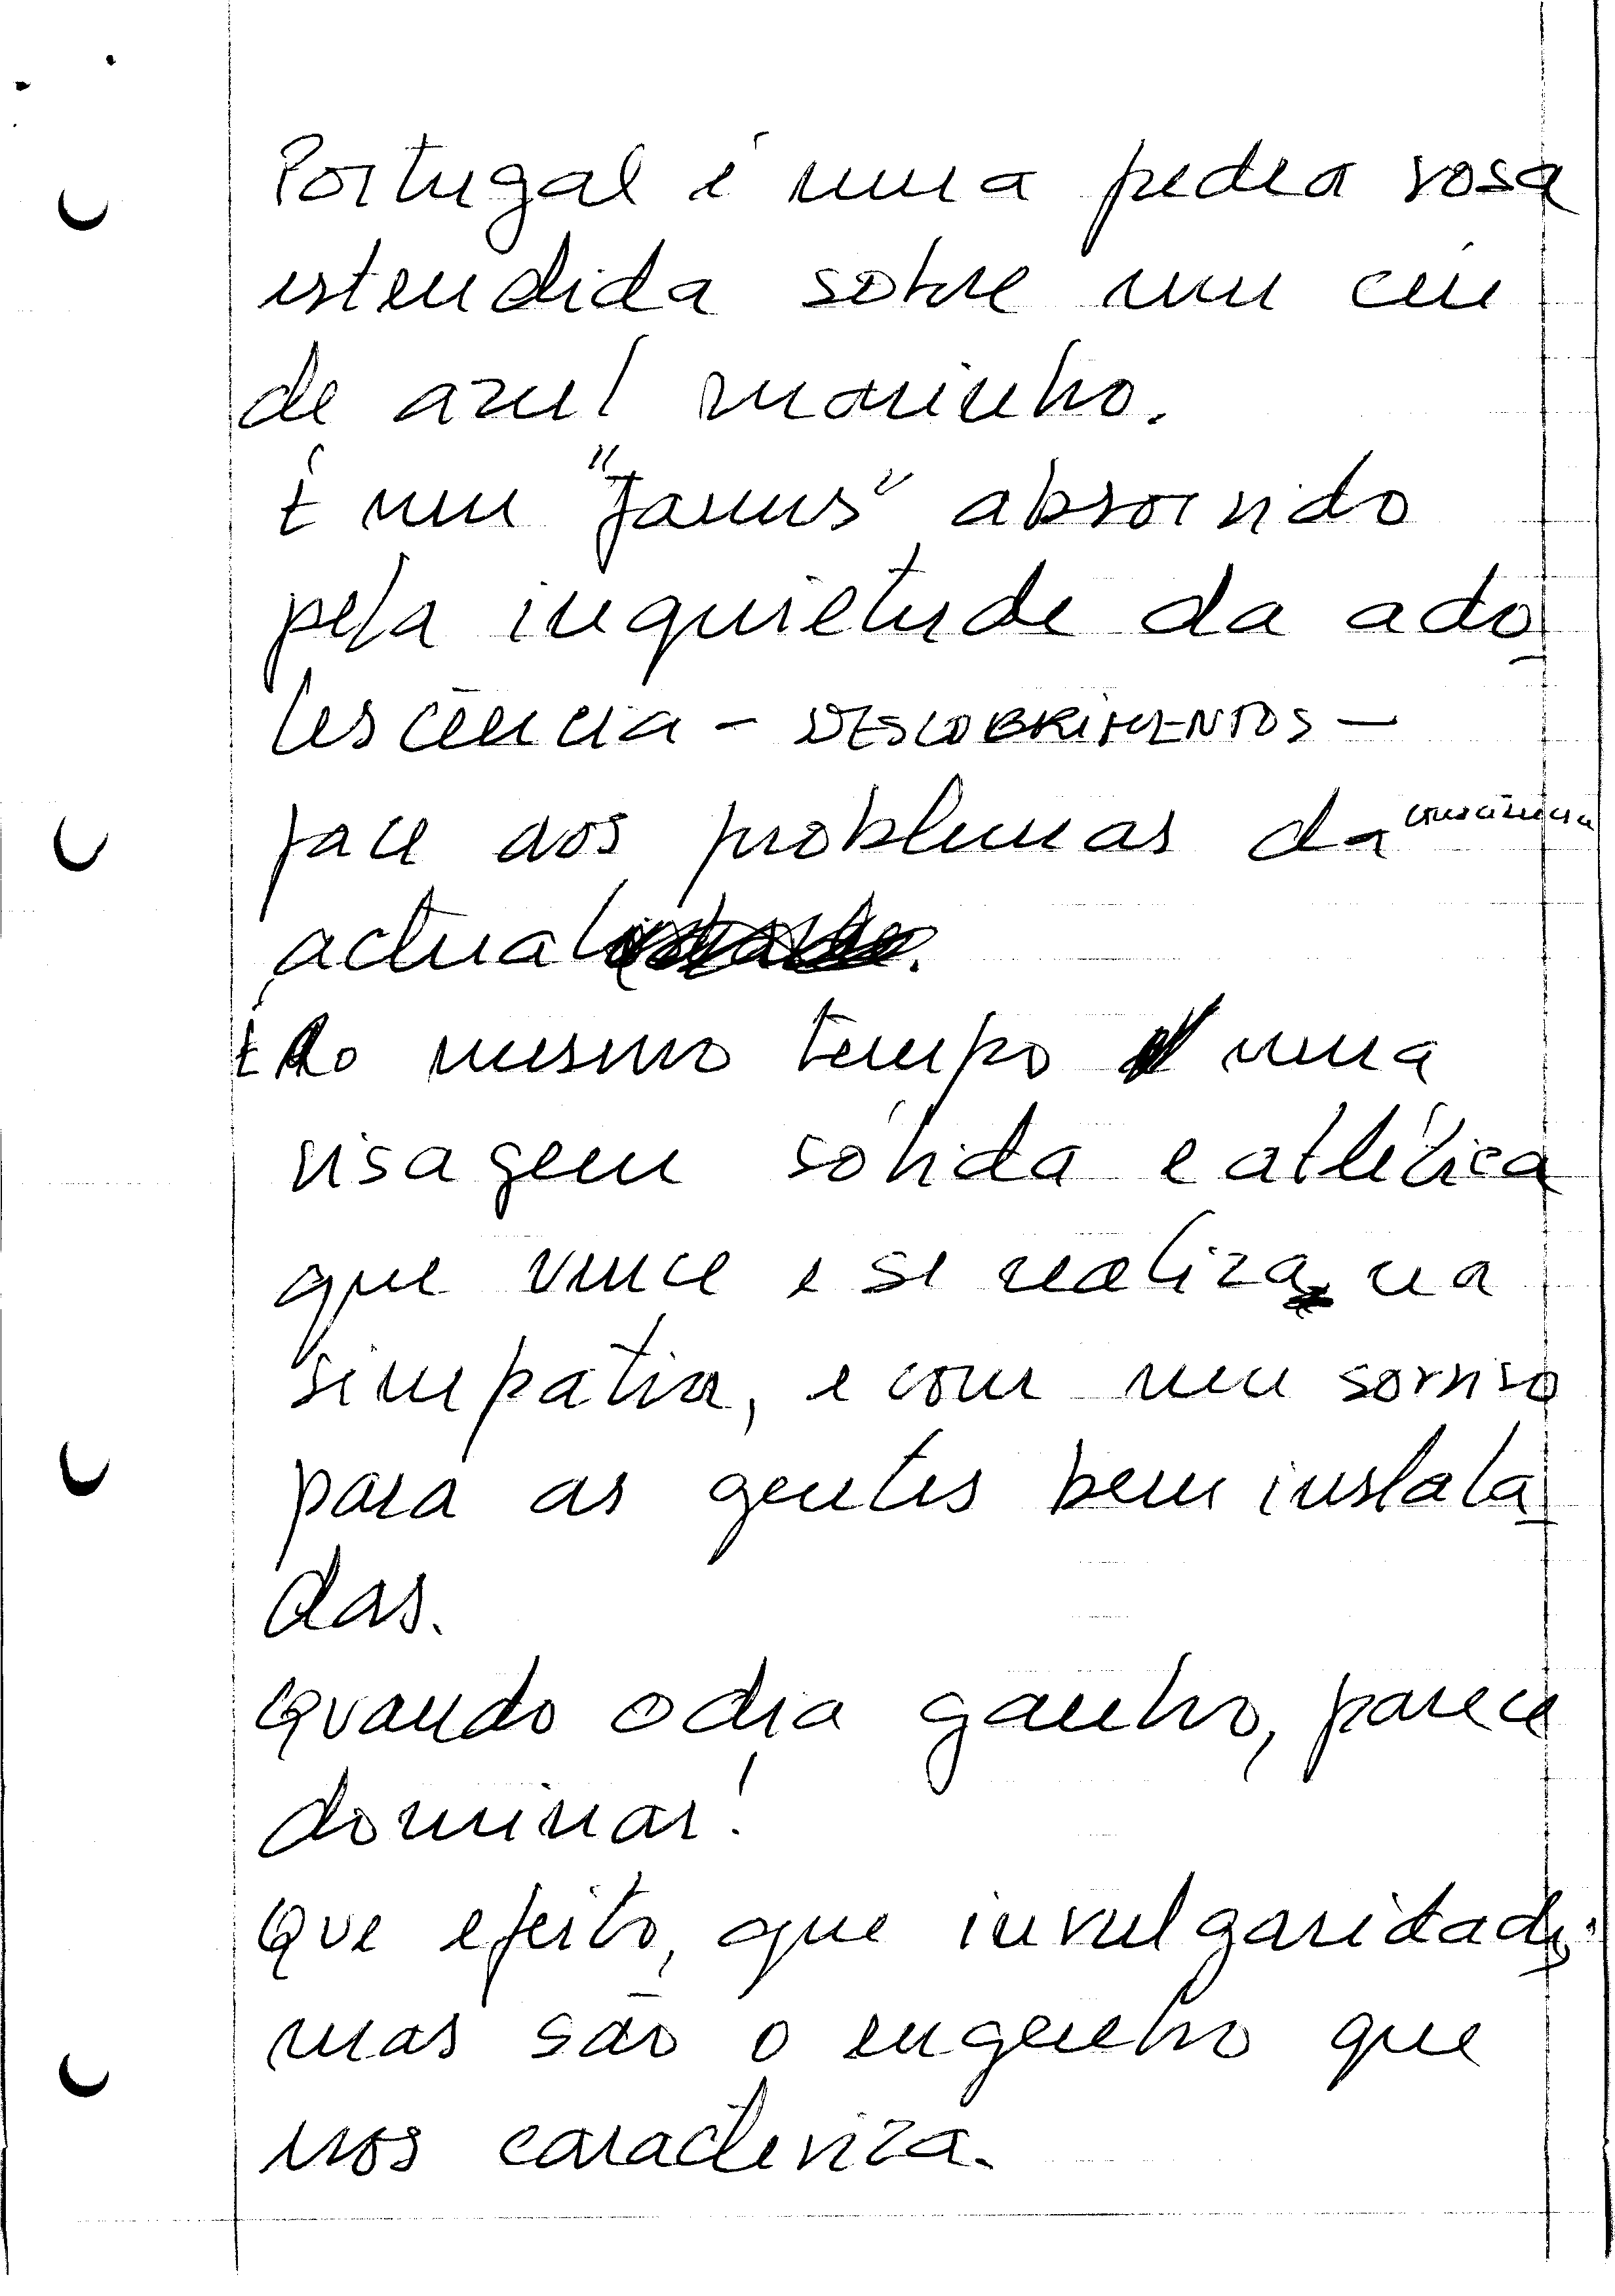 Portugal é uma pedra rosa
estendida sobre um céu
de azul marinho.
É um "Janus" absorvido
pela inquietude da ado
lescência - DESCOBRIMENTOS -
face aos problemas da consciência
actual.
É Ao mesmo tempo uma
visagem sólida e atlética
que vence e se realiza na
simpatia, e com um sorriso
para as gentes bem instala
das.
Quando o dia ganho, parece
dominar!
Que efeito, que invulgaridade
mas são o engenho que
nos caracteriza.